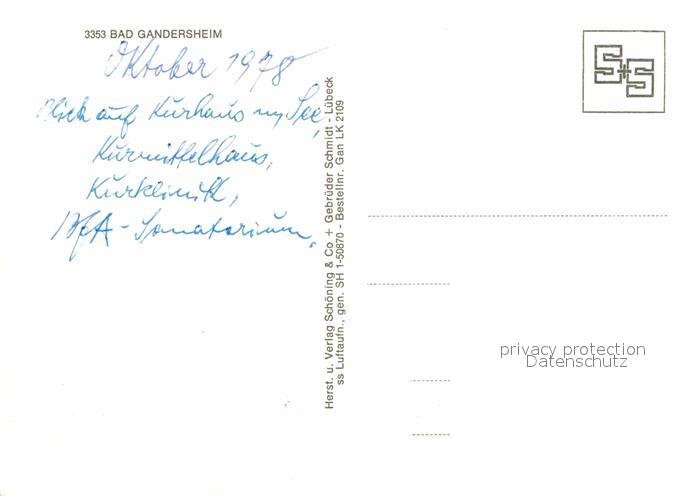 3353 BAD GANDERSHEIM
Oktober 1978
Blick auf Kurhaus m. See,
Kurmittelhaus,
Kurklinik,
BfA-Sanatorium.
Herst. u. Verlag Schöning & Co + Gebrüder Schmidt - Lübeck
ss Luftaufn., gen. SH 1-50870 - Bestellnr. Gan LK 2109
S+S
privacy protection
Datenschutz